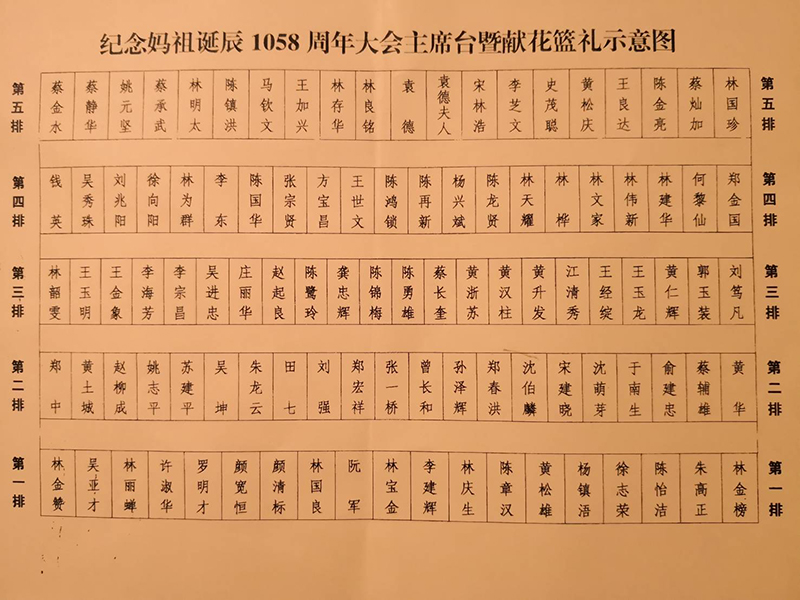 纪念妈祖诞辰 1058 周年大会主席台暨献花篮礼示意图
第五排 蔡金水 蔡静华 姚元坚 蔡承武 林明太 陈镇洪 马钦文 王加兴 林存华 林良铭 袁德 袁德夫人 宋林浩 李芝文 史茂聪 黄松庆 王良达 陈金亮 蔡灿加 林国珍 第五排
第四排 钱英 吴秀珠 刘兆阳 徐向阳 林为群 李东 陈国华 张宗贤 方宝昌 王世文 陈鸿锁 陈再新 杨兴斌 陈龙贤 林天耀 林桦 林文家 林伟新 林建华 何黎仙 郑金国 第四排
第三排 林韶雯 王玉明 王金象 李海芳 李宗昌 吴进忠 庄丽华 赵起良 陈鹭玲 龚忠辉 陈锦梅 陈勇雄 蔡长奎 黄浙苏 黄汉柱 黄升发 江清秀 王经绽 王玉龙 黄仁辉 郭玉装 刘笃凡 第三排
第二排 郑中 黄土城 赵柳成 姚志平 苏建平 吴坤 朱龙云 田七 刘强 郑宏祥 张一桥 曾长和 孙泽辉 郑春洪 沈伯麟 宋建晓 沈萌芽 于南生 俞建忠 蔡辅雄 黄华 第二排
第一排 林金赞 吴亚才 林丽蝉 许淑华 罗明才 颜宽恒 颜清标 林国良 阮军 林宝金 李建辉 林庆生 陈章汉 黄松雄 杨镇浯 徐志荣 陈怡洁 朱高正 林金榜 第一排